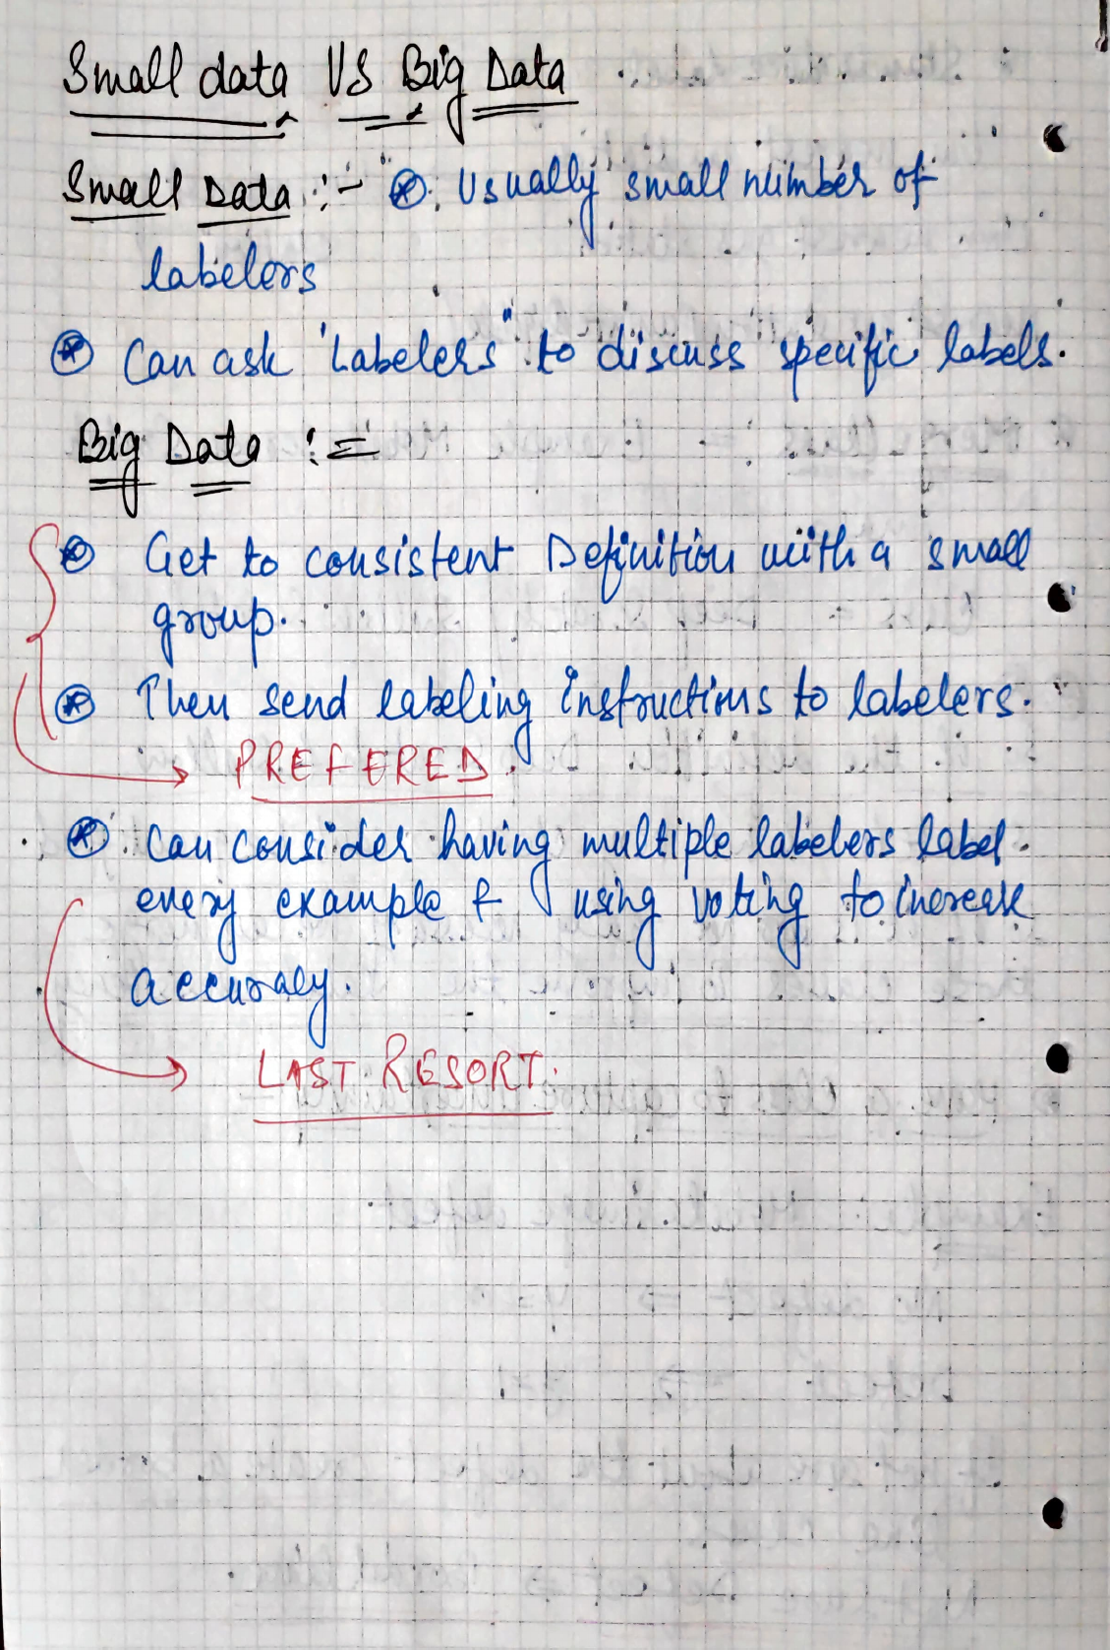 Small data VS Big Data
Small Data :- ⊛ Usually small number of
labelers
⊛ Can ask "Labelers" to discuss specific labels.
Big Data :=
⊛ Get to consistent Definition with a small
group.
⊛ Then send labeling instructions to labelers.
→ PREFERED.
⊛ Can consider having multiple labelers label
every example & using voting to increase
accuracy.
→ LAST RESORT.